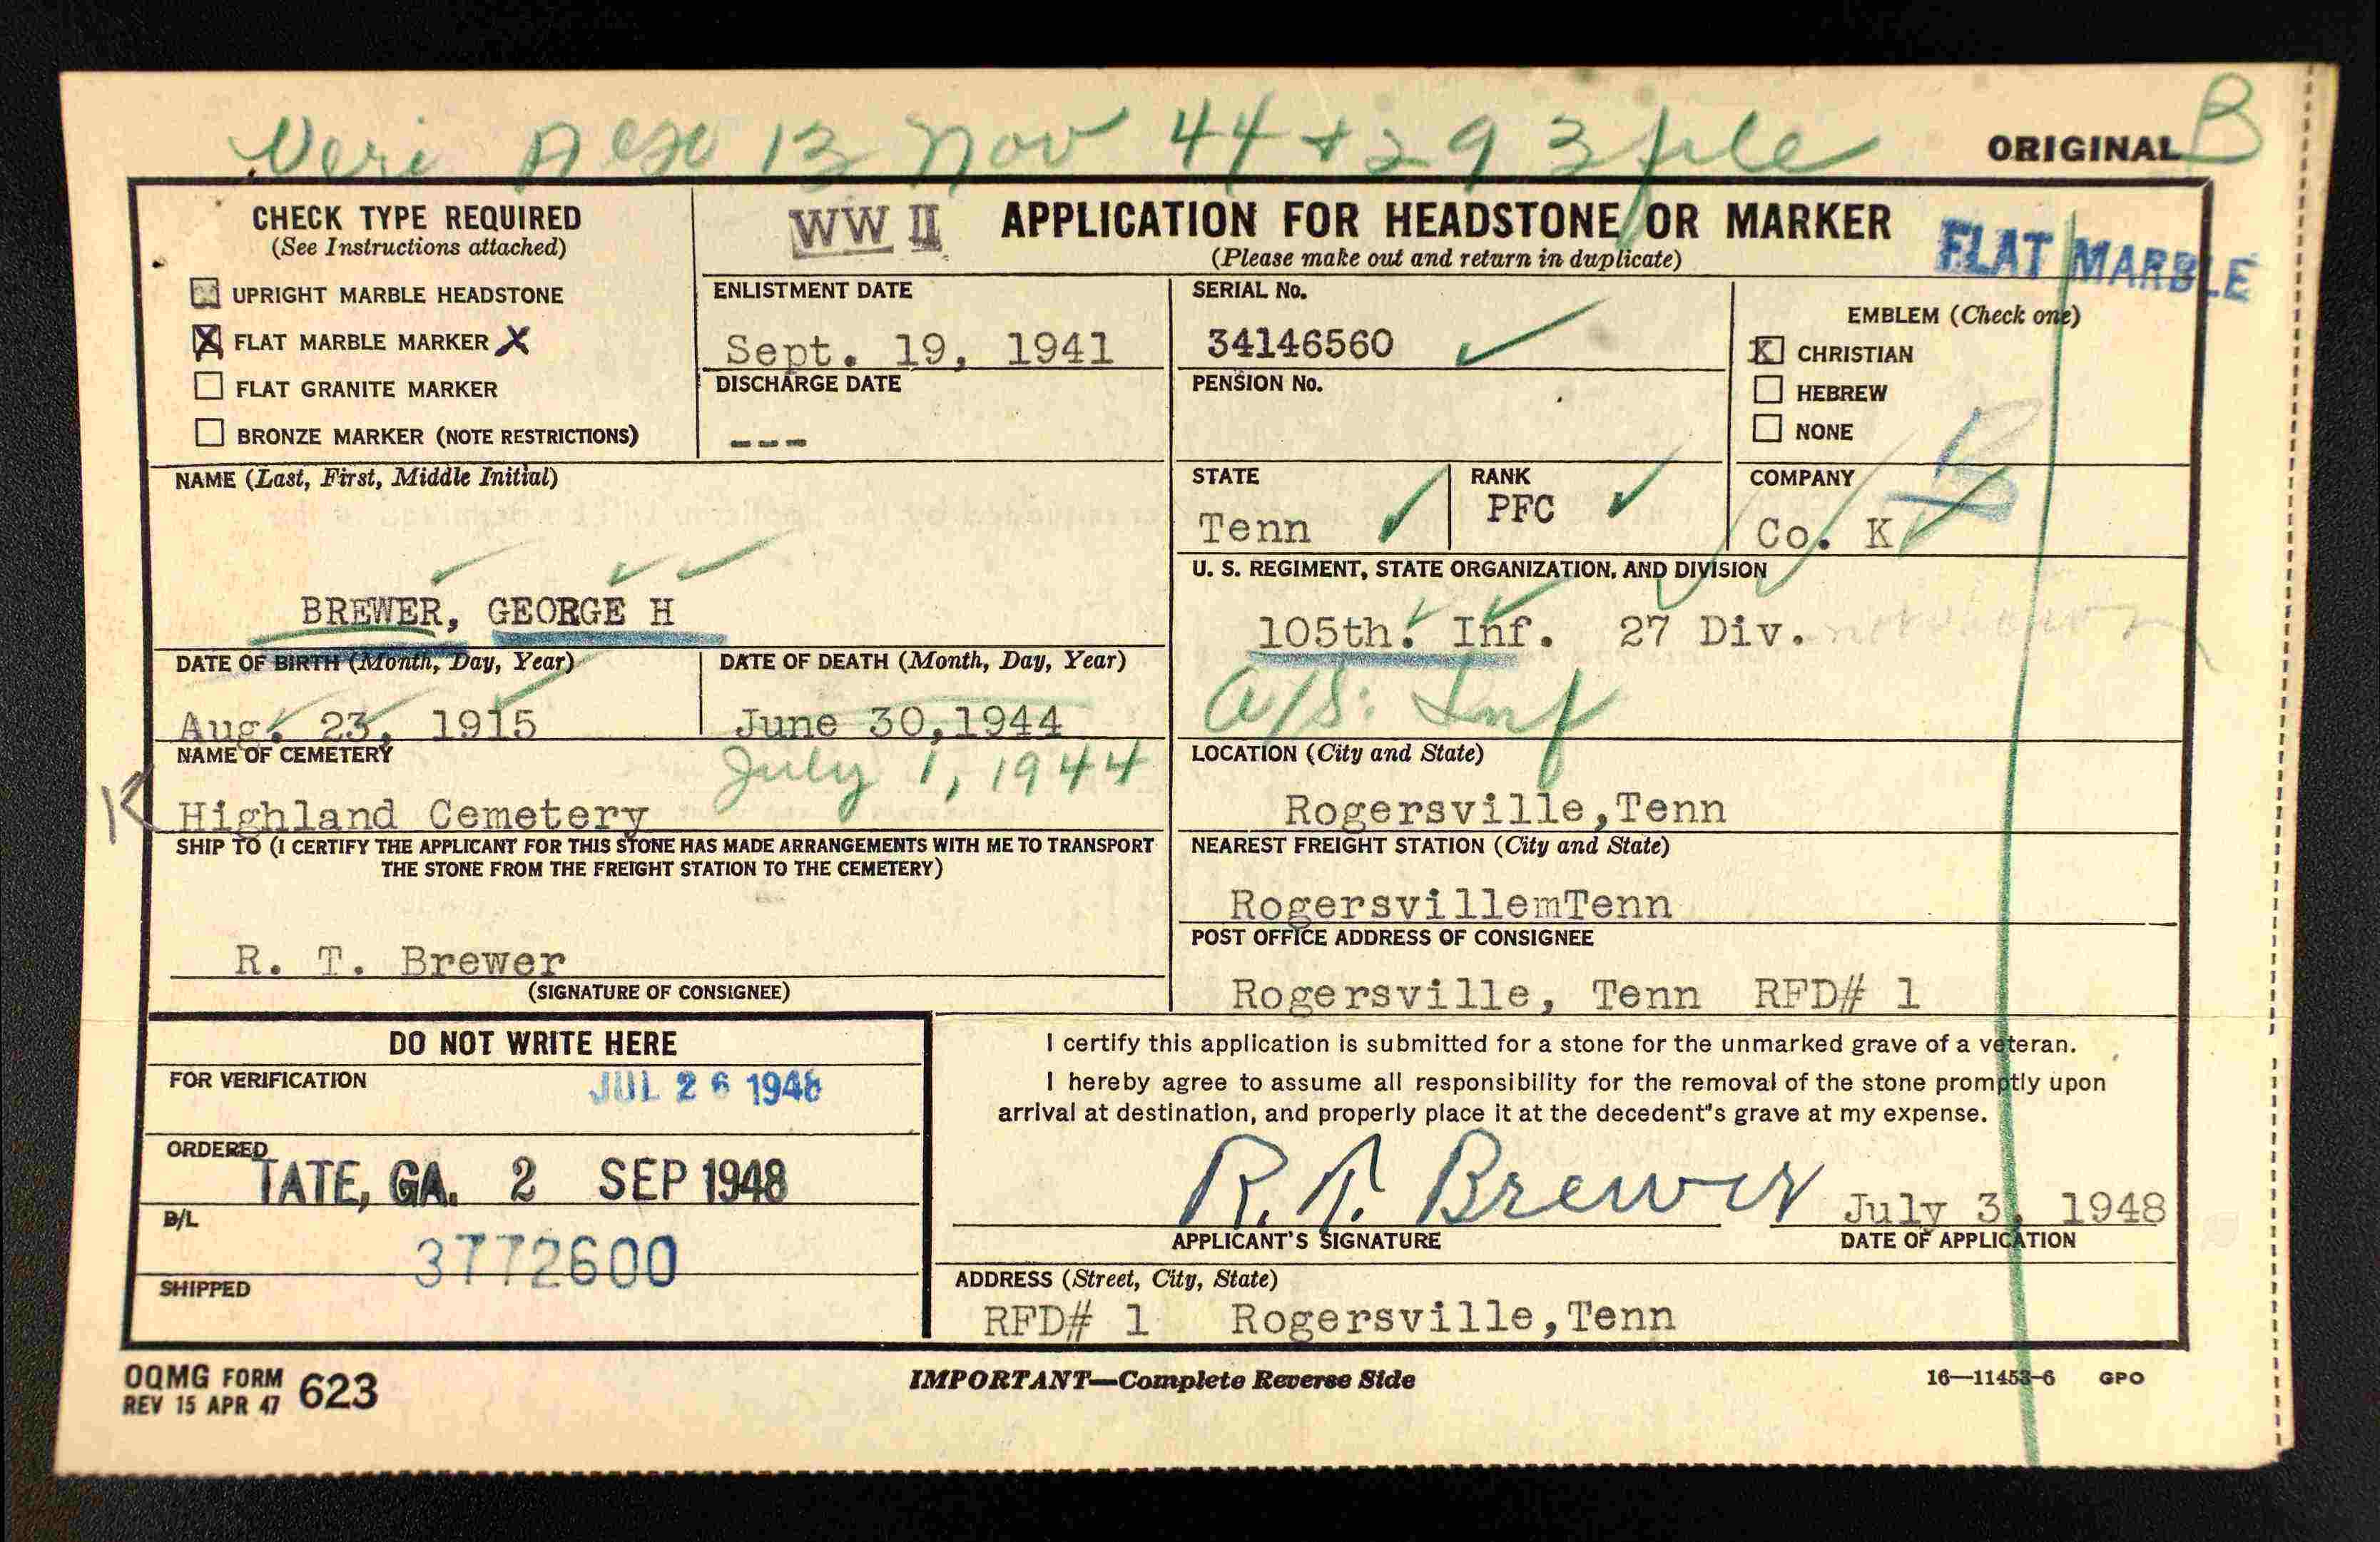 Veri 13 Nov 44 + 293 file
ORIGINAL B
CHECK TYPE REQUIRED
(See Instructions attached)
UPRIGHT MARBLE HEADSTONE
X FLAT MARBLE MARKER X
FLAT GRANITE MARKER
BRONZE MARKER (NOTE RESTRICTIONS)
WW II APPLICATION FOR HEADSTONE OR MARKER
(Please make out and return in duplicate)
FLAT MARBLE
ENLISTMENT DATE
Sept. 19, 1941
DISCHARGE DATE
---
SERIAL No.
34146560
PENSION No.
EMBLEM (Check one)
X CHRISTIAN
HEBREW
NONE
NAME (Last, First, Middle Initial)
BREWER, GEORGE H
STATE
Tenn
RANK
PFC
COMPANY
Co. K
U. S. REGIMENT, STATE ORGANIZATION, AND DIVISION
105th. Inf. 27 Div.
A/S: Inf
DATE OF BIRTH (Month, Day, Year)
Aug. 23, 1915
DATE OF DEATH (Month, Day, Year)
June 30,1944
July 1, 1944
NAME OF CEMETERY
K Highland Cemetery
LOCATION (City and State)
Rogersville,Tenn
SHIP TO (I CERTIFY THE APPLICANT FOR THIS STONE HAS MADE ARRANGEMENTS WITH ME TO TRANSPORT
THE STONE FROM THE FREIGHT STATION TO THE CEMETERY)
R. T. Brewer
(SIGNATURE OF CONSIGNEE)
NEAREST FREIGHT STATION (City and State)
RogersvillemTenn
POST OFFICE ADDRESS OF CONSIGNEE
Rogersville, Tenn RFD# 1
DO NOT WRITE HERE
FOR VERIFICATION
JUL 26 1948
ORDERED
TATE, GA. 2 SEP 1948
B/L
3772600
SHIPPED
I certify this application is submitted for a stone for the unmarked grave of a veteran.
I hereby agree to assume all responsibility for the removal of the stone promptly upon
arrival at destination, and properly place it at the decedent"s grave at my expense.
R. T. Brewer July 3, 1948
APPLICANT'S SIGNATURE DATE OF APPLICATION
ADDRESS (Street, City, State)
RFD# 1 Rogersville,Tenn
OQMG FORM 623
REV 15 APR 47
IMPORTANT—Complete Reverse Side
16—11453-6 GPO